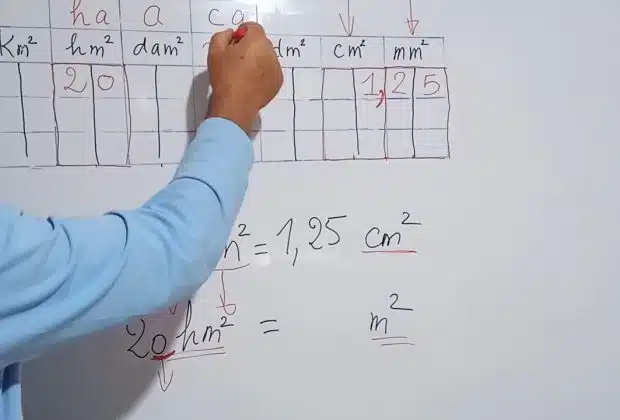 ha a ca
Km² hm² dam² dm² cm² mm²
20 1,25
m² = 1,25 cm²
20 hm² = m²